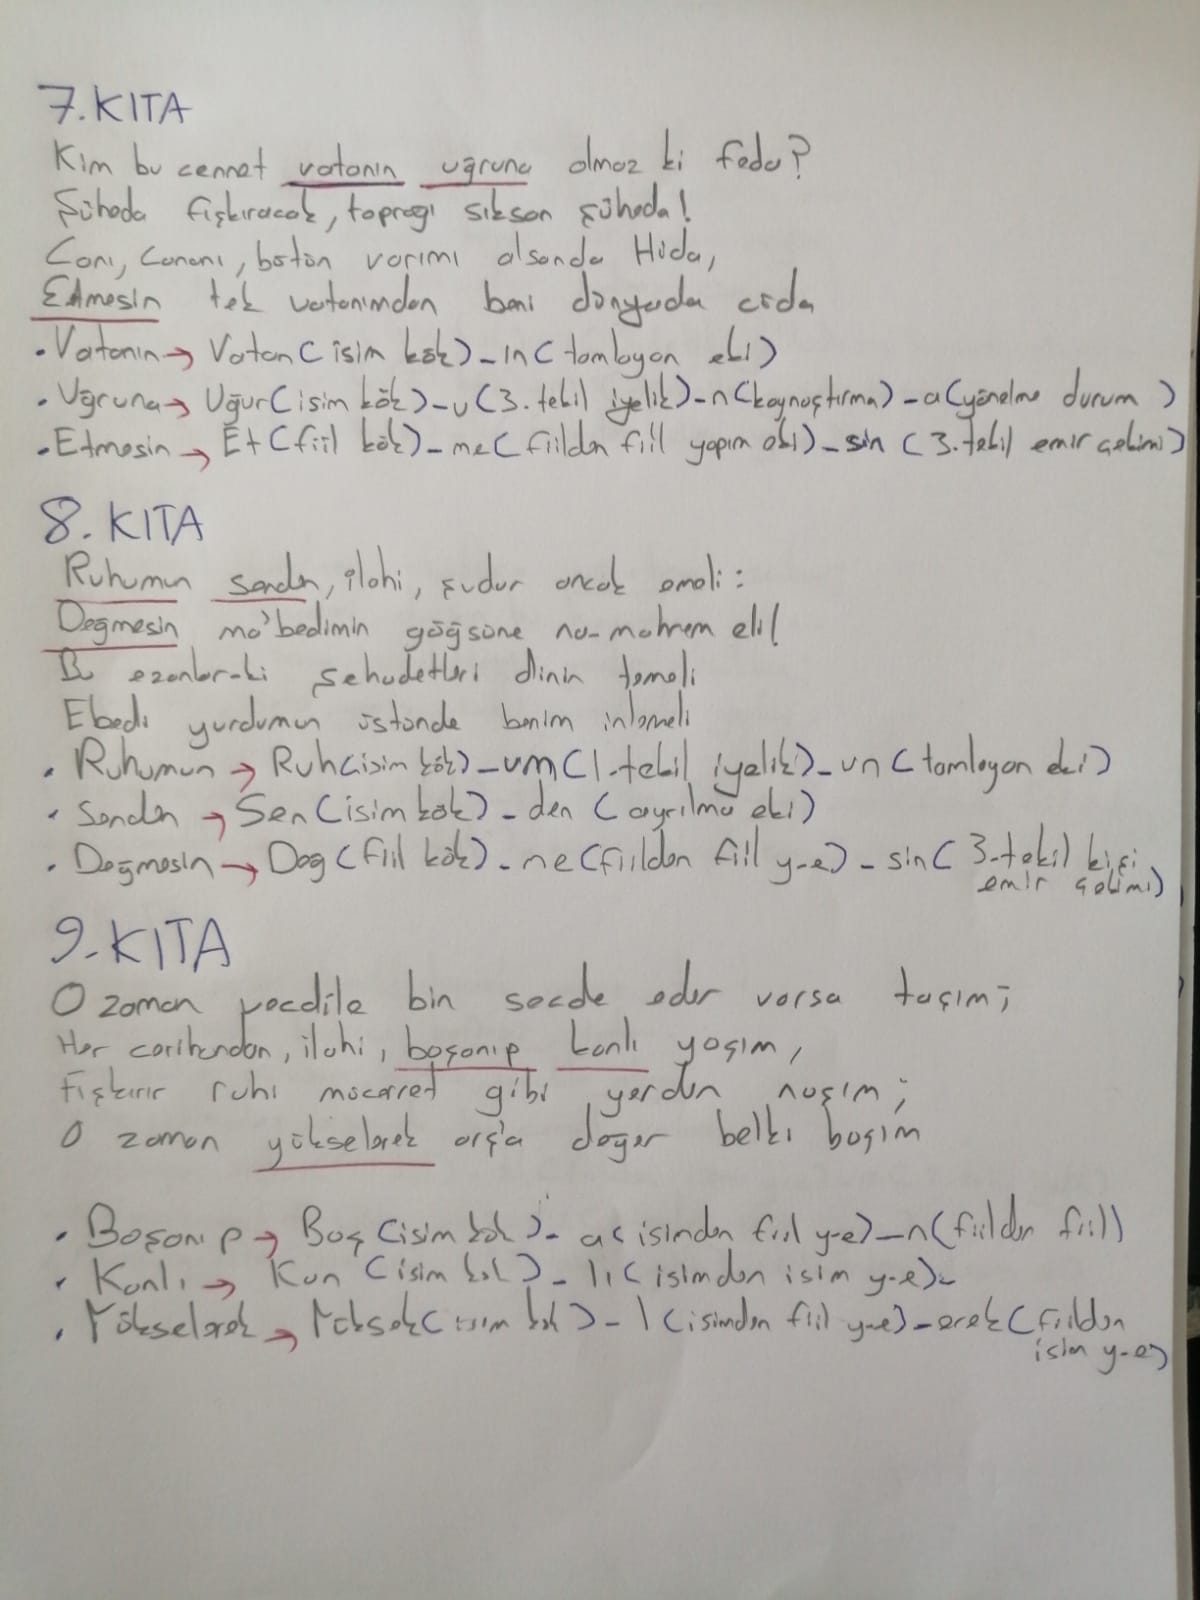 7.KITA
Kim bu cennet vatanın uğruna olmaz ki feda?
Şüheda fışkıracak, toprağı sıksan şüheda!
Canı, cananı, bütün varımı alsanda Hüda,
Etmesin tek vatanımdan beni dünyada cüda
• Vatanın → Vatan (isim kök) - ın (tamlayan eki)
• Uğruna → Uğur (isim kök) - u (3. tekil iyelik) - n (kaynaştırma) - a (yönelme durum )
• Etmesin → Et (fiil kök) - me (fiilden fiil yapım eki) - sin (3. tekil emir çekimi)
8. KITA
Ruhumun senden, ilahi, şudur ancak emeli:
Değmesin ma'bedimin göğsüne na-mahrem eli!
Bu ezanlar-ki şehadetleri dinin temeli
Ebedi yurdumun üstünde benim inlemeli
• Ruhumun → Ruh (isim kök) - um (1. tekil iyelik) - un (tamlayan eki)
• Senden → Sen (isim kök) - den (ayrılma eki)
• Değmesin → Değ (fiil kök) - me (fiilden fiil y-e) - sin ( 3. tekil kişi
emir çekimi)
9. KITA
O zaman vecdile bin secde eder varsa taşım;
Her cerihandan, ilahi, boşanıp kanlı yaşım,
Fışkırır ruhi mücerret gibi yerden naşım;
O zaman yükselerek arş'a değer belki başım
• Boşanıp → Boş (isim kök) - a (isimden fiil y-e) - n (fiilden fiil)
• Kanlı → Kan (isim kök) - lı (isimden isim y-e) -
• Yükselerek → Yüksek (isim kök) - l (isimden fiil y-e) - erek (fiilden
isim y-e)